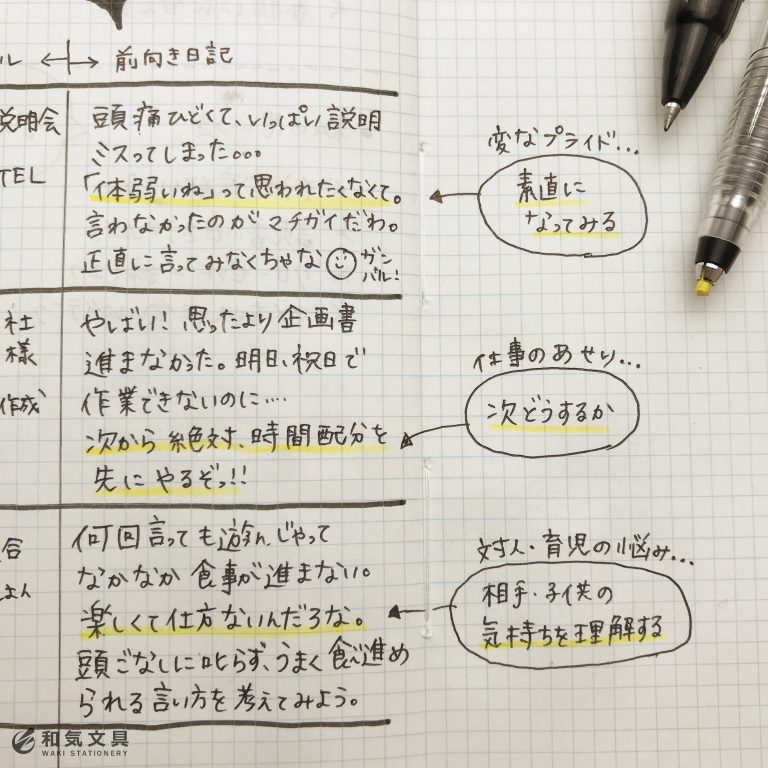 ル ←→ 前向き日記
説明会
TEL
頭痛ひどくて、いっぱい説明
ミスってしまった。。。
「体弱いね」って思われたくなくて。
言わなかったのがマチガイだわ。
正直に言ってみなくちゃな ガンバル!
変なプライド...
素直に
なってみる
社
様
作成
やばい! 思ったより企画書
進まなかった。明日、祝日で
作業できないのに....
次から絶対、時間配分を
先にやるぞっ!!
仕事のあせり...
次どうするか
合
何回言っても遊んじゃって
なかなか食事が進まない。
楽しくて仕方ないんだろな。
頭ごなしに叱らず、うまく食べ進め
られる言い方を考えてみよう。
対人・育児の悩み...
相手・子供の
気持ちを理解する
和気文具
WAKI STATIONERY